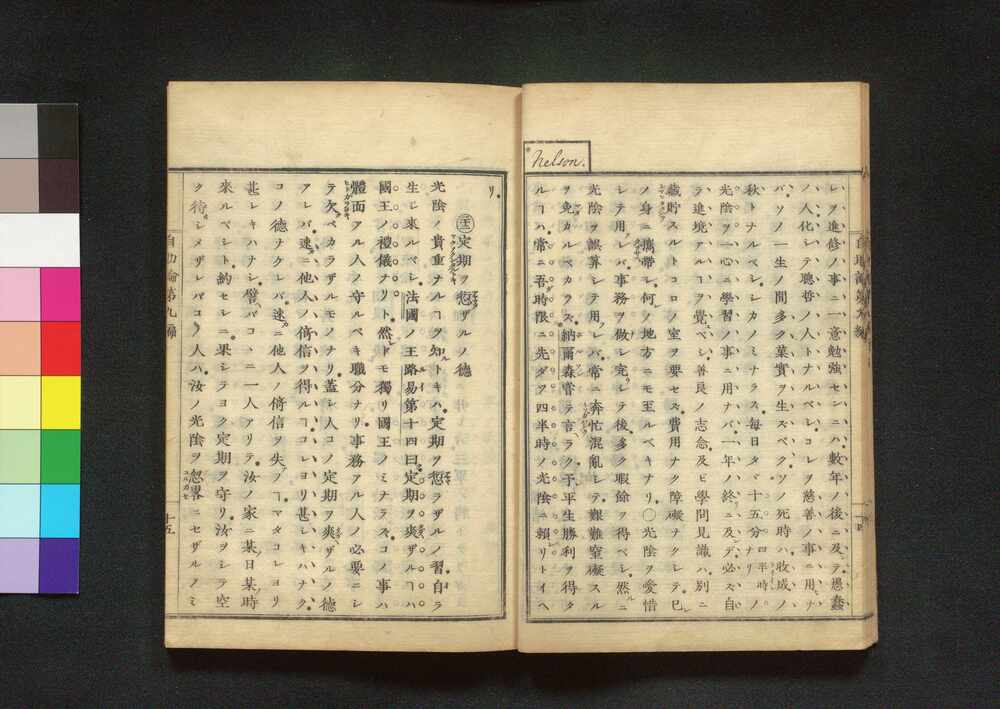 Nelson.
レヲ進修ノ事ニ一意勉強センニハ數年ノ後ニ及ンデ愚蠢
ノ人化シテ聰哲ノ人トナルベレコレヲ慈善ノ事ニ用ナ
バソノ一生ノ間多ク菓實ヲ生ズベクソノ死時ハ收成ノ
秋トナルベレシカノミナラズ毎日タヾ十五分四半時ナリノ
光陰ヲ一心ニ學習ノ事ニ用ナバ一年ノ終ニ及デ必ズ自
ラ進境アルヿヲ覺ベシ善良ノ志念及ビ學問見識ハ別ニ
藏貯スルトコロノ室ヲ要セズ費用ナク障礙ナクレテ已
ノ身ニ攜帶レ何ノ地方ニモ王ルベキナリ〇光陰ヲ愛惜
シテ用レバ事務ヲ做レ完リテ後多ク暇餘ヲ得ベシ然ルニ
光陰ヲ誤算シテ用レバ常ニ奔忙混亂レテ艱難窒礙スル
ヲ免カルベカラズ納爾森嘗テ言ラク予平生勝利ヲ得タ
ルヿハ常ニ吾時限ニ先ダツ四半時ノ光陰ニ賴リトイヘ
リ
㊂定期ヲ愆ザルノ德
光陰ノ貴重ナルヿヲ知トキハ定期ヲ愆ラザルノ習自ラ
生レ來ルベレ法國ノ王路易第十四曰定期ヲ爽ザルヿハ
國王ノ禮儀ナリト然ドモ獨リ國王ノミナラズコノ事ハ
體面アル人ノ守ルベキ職分ナリ事務アル人ノ必要ニシ
テ欠ベカラザルモノナリ蓋レ人コノ定期ヲ爽ザルノ德
アレバ速ニ他人ノ倚信ヲ得ルヿコレヨリ甚レキハナク
コノ德ナクレバ速ニ他人ノ倚信ヲ失フヿマタコレヨリ
甚レキハナシ譬バコヽニ一人アリテ汝ノ家ニ某日某時
來ルベシト約セレニ果シテヨク定期ヲ守リ汝ヲシテ空
ク待シメザレバコノ人ハ汝ノ光陰ヲ忽畧ニセザルノミ
自助論第九編
十五